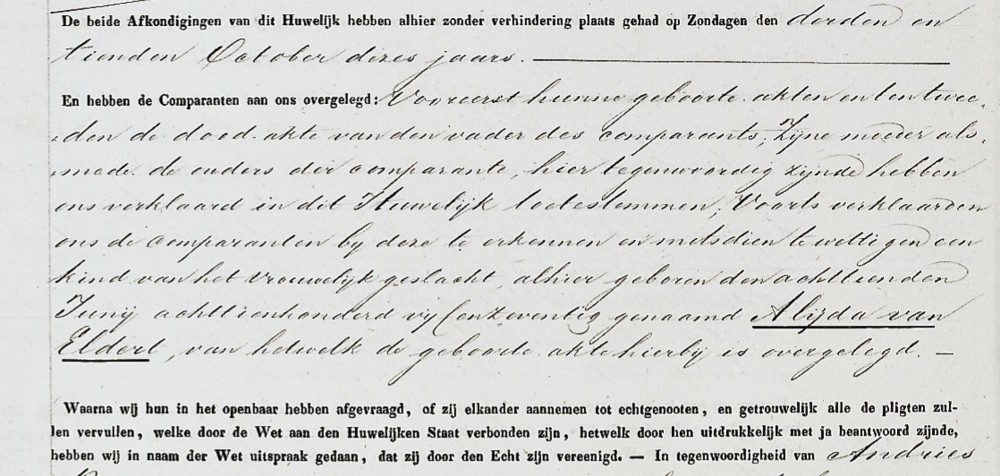 De beide Afkondigingen van dit Huwelijk hebben alhier zonder verhindering plaats gehad op Zondagen den derden en
tienden October dezes jaars.
En hebben de Comparanten aan ons overgelegd: Vooreerst hunne geboorte akten en ten twee-
den de dood-akte van den vader des comparants; Zijne moeder als-
mede de ouders der comparante, hier tegenwoordig zijnde hebben
ons verklaard in dit Huwelijk toetestemmen; Voorts verklaarden
ons de comparanten bij deze te erkennen en metsdien te wettigen een
kind van het vrouwelijk geslacht, alhier geboren den achttienden
Junij achttienhonderd vijf en zeventig genaamd Alijda van
Eldert, van hetwelk de geboorte akte hierbij is overgelegd. —
Waarna wij hun in het openbaar hebben afgevraagd, of zij elkander aannemen tot echtgenooten, en getrouwelijk alle de pligten zul-
len vervullen, welke door de Wet aan den Huwelijken Staat verbonden zijn, hetwelk door hen uitdrukkelijk met ja beantwoord zijnde,
hebben wij in naam der Wet uitspraak gedaan, dat zij door den Echt zijn vereenigd. — In tegenwoordigheid van Andries